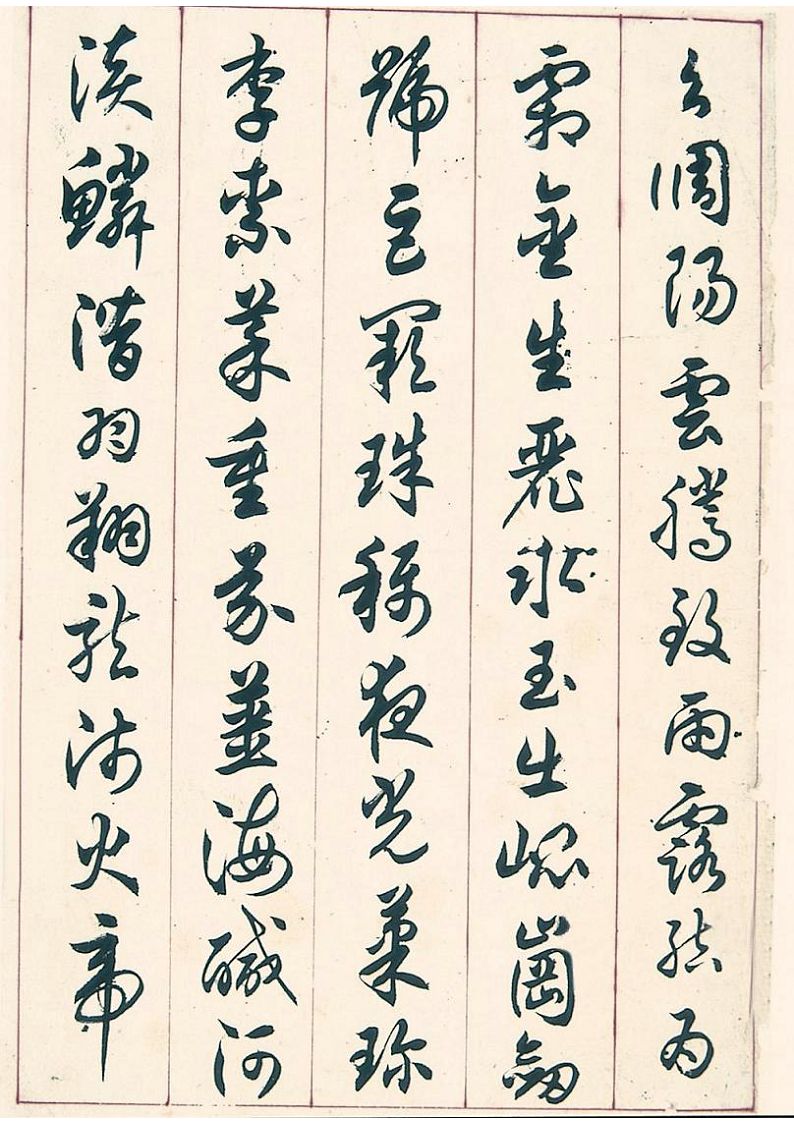 呂調陽雲騰致雨露結為
霜金生麗水玉出崐崗劍
號巨闕珠稱夜光菓珍
李柰菜重芥薑海醎河
淡鱗潛羽翔龍師火帝